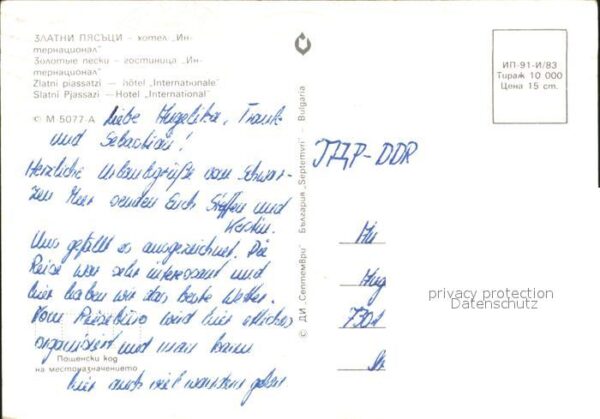 ЗЛАТНИ ПЯСЪЦИ – хотел „Ин-
тернационал"
Золотые пески – гостиница „Ин-
тернационал"
Zlatni piassatzi – hôtel „Internationale"
Slatni Pjassazi – Hotel „International"
© М 5077-А
Liebe Angelika, Frank
und Sebastian!
Herzliche Urlaubsgrüße vom Schwar-
zen Meer senden Euch Steffen und
Kerstin.
Uns gefällt es ausgezeichnet. Die
Reise war sehr interessant und
hier haben wir das beste Wetter.
Vom Reisebüro wird hier etliches
organisiert und man kann
hier auch viel wandern gehen
Пощенски код
на местоназначението
© ДИ „Септември" България „Septemvri" – Bulgaria
ИП-91-И/83
Тираж 10 000
Цена 15 ст.
ГДР-DDR
730
privacy protection
Datenschutz